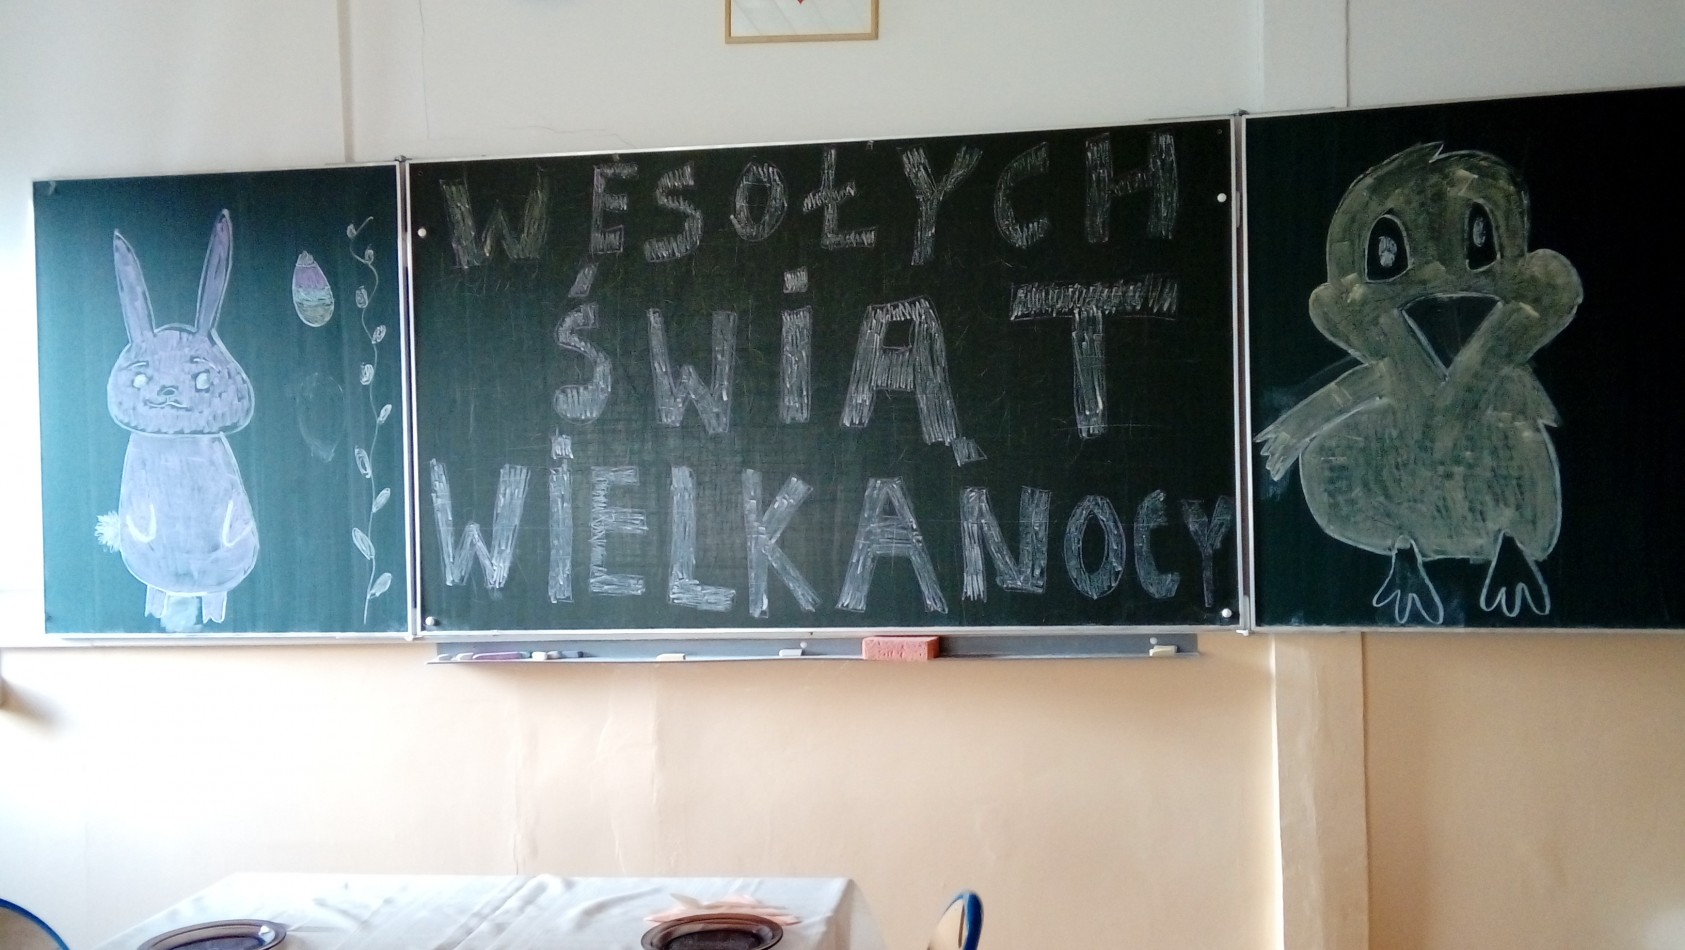 WESOŁYCH
ŚWIĄT
WIELKANOCY